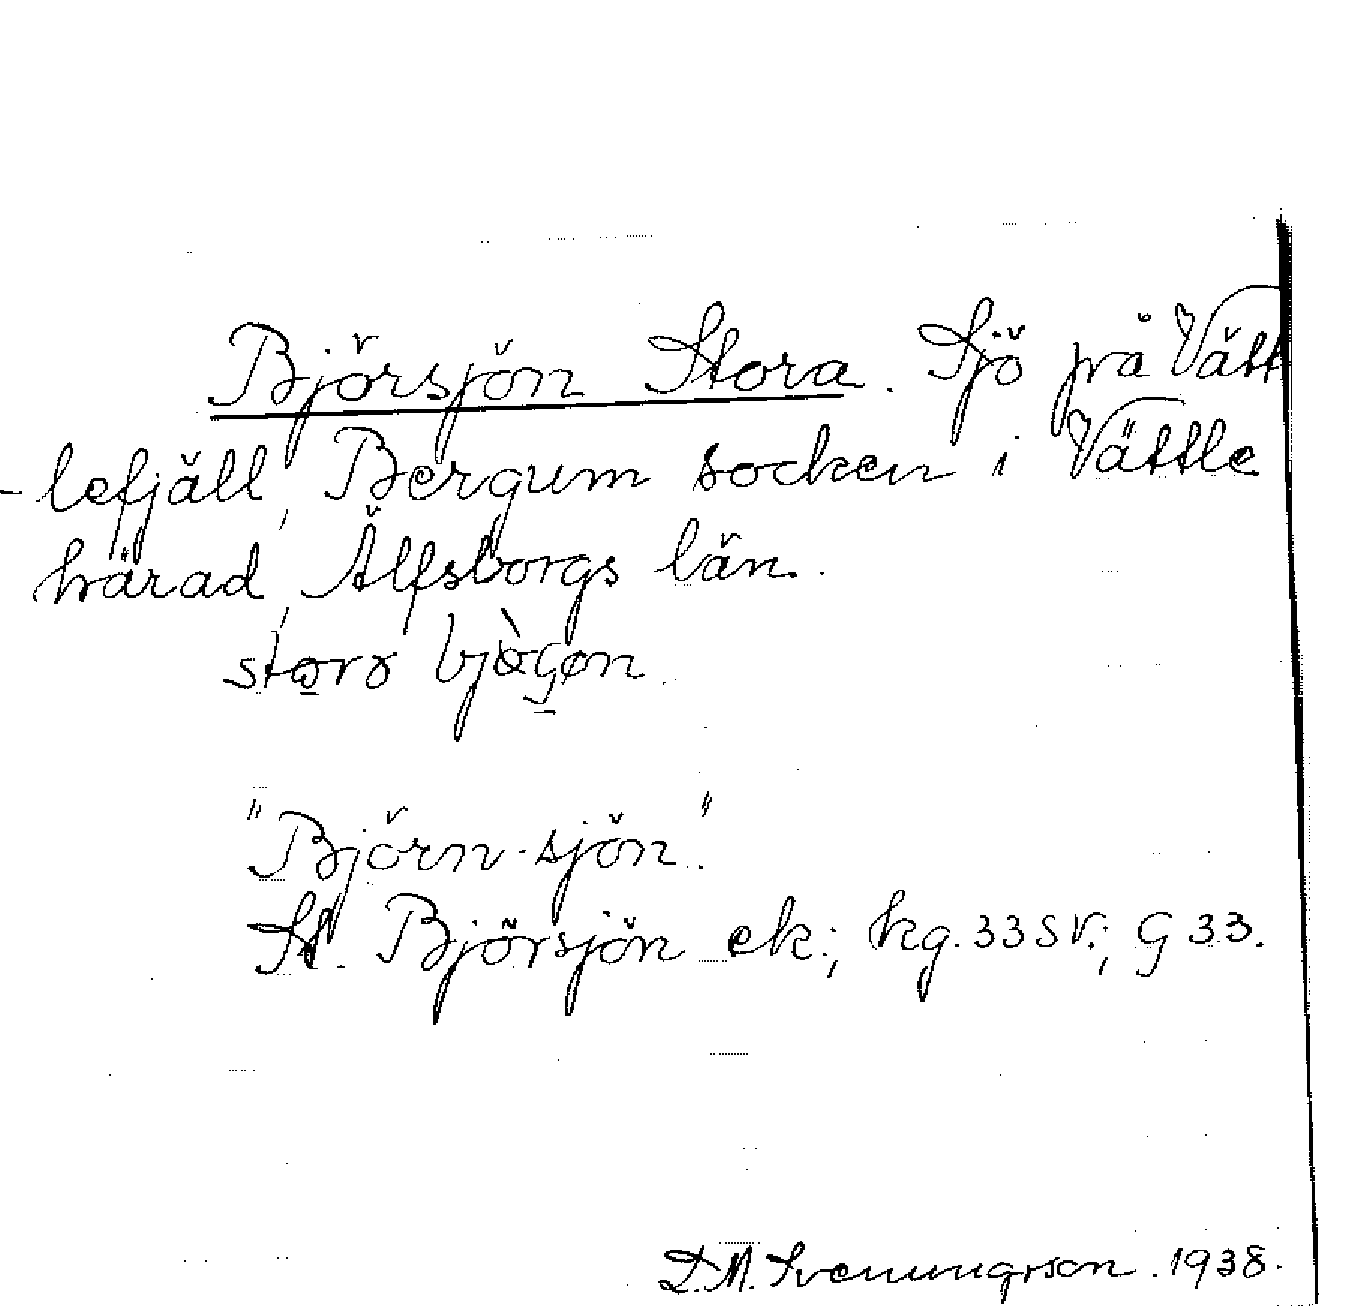 Björsjön Stora. Sjö på Vätt
-lefjäll, Bergum socken i Vättle
härad, Älfsborgs län.
"Björn-sjön".
St. Björsjön ek.; kg. 33 SV.; G 33.
D.A. Svenungsson. 1938.